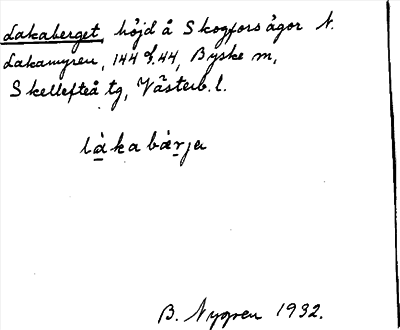 Lakaberget, höjd å Skogforsågor N.
Lakamyren, 144 f. 44, Byske m,
Skellefteå tg, Västerb. l.
làka bærja
B. Nygren 1932.